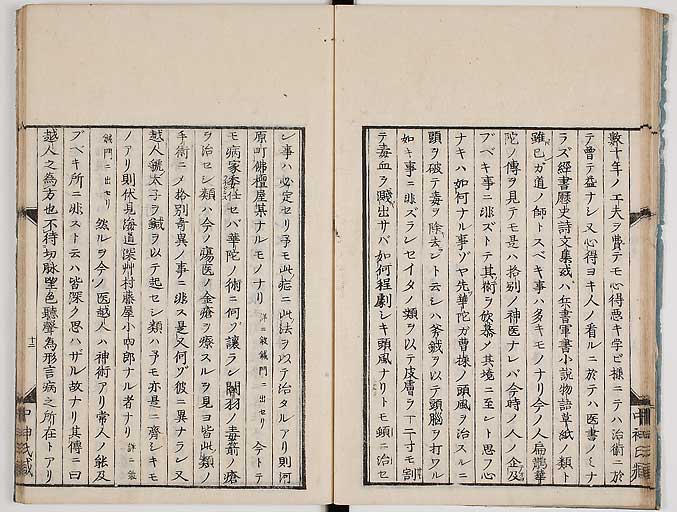 數十年ノ工夫ヲ費テモ心得悪キ学ビ様ニテハ治術ニ於
テ曽テ益ナシ又心得ヨキ人ノ看ルニ於テハ医書ノミナ
ラズ經書歷史詩文集或ハ兵書軍書小説物語草紙ノ類ト
雖モ己ガ道ノ師トスベキ事ハ多キモノナリ今ノ人扁鵲華
陀ノ傳ヲ見テモ是ハ挌別ノ神医ナレバ今時ノ人ノ企及
ブベキ事ニ非ズトテ其術ヲ欽慕ノ其境ニ至レト思フ心
ナキハ如何ナル事ゾヤ先華陀ガ曹操ノ頭風ヲ治スルニ
頭ヲ破テ毒ヲ除去ント云シハ斧鉞ヲ以テ頭腦ヲ打ワル
如キ事ニ非ズランセイタノ類ヲ以テ皮膚ヲ一二寸モ割
テ毒血ヲ瀉出サバ如何程劇シキ頭風ナリトモ頓ニ治セ
シ事ハ必定セリ予モ此症ニ此法ヲ以テ治タルアリ則河
原町佛檀屋某ナルモノナリ 詳ニ数鍼門ニ出セリ 今トテ
モ病家委任セバ華陀ノ術ニ何ゾ讓ラン關羽ノ毒箭ノ瘡
ヲ治セシ類ハ今ノ瘍医ノ金瘡ヲ療スルヲ見ヨ皆此類ノ
手術ニノ格別奇異ノ事ニ非ス是又何ゾ彼ニ異ナラン又
越人虢太子ヲ鍼ヲ以テ起セシ類ハ予モ亦是ニ齊シキモ
ノアリ則伏見海道深艸村藤屋小四郎ナル者ナリ 詳ニ
鍼門ニ出セリ 然ルヲ今ノ医越人ハ神術アリ常人ノ能及
ブベキ所ニ非ストニ云ハ皆深ク思ハザル故ナリ其傳ニ曰
越人之為方也不待切脉望色聽聲為形言病之所在トアリ
十三
中神氏藏